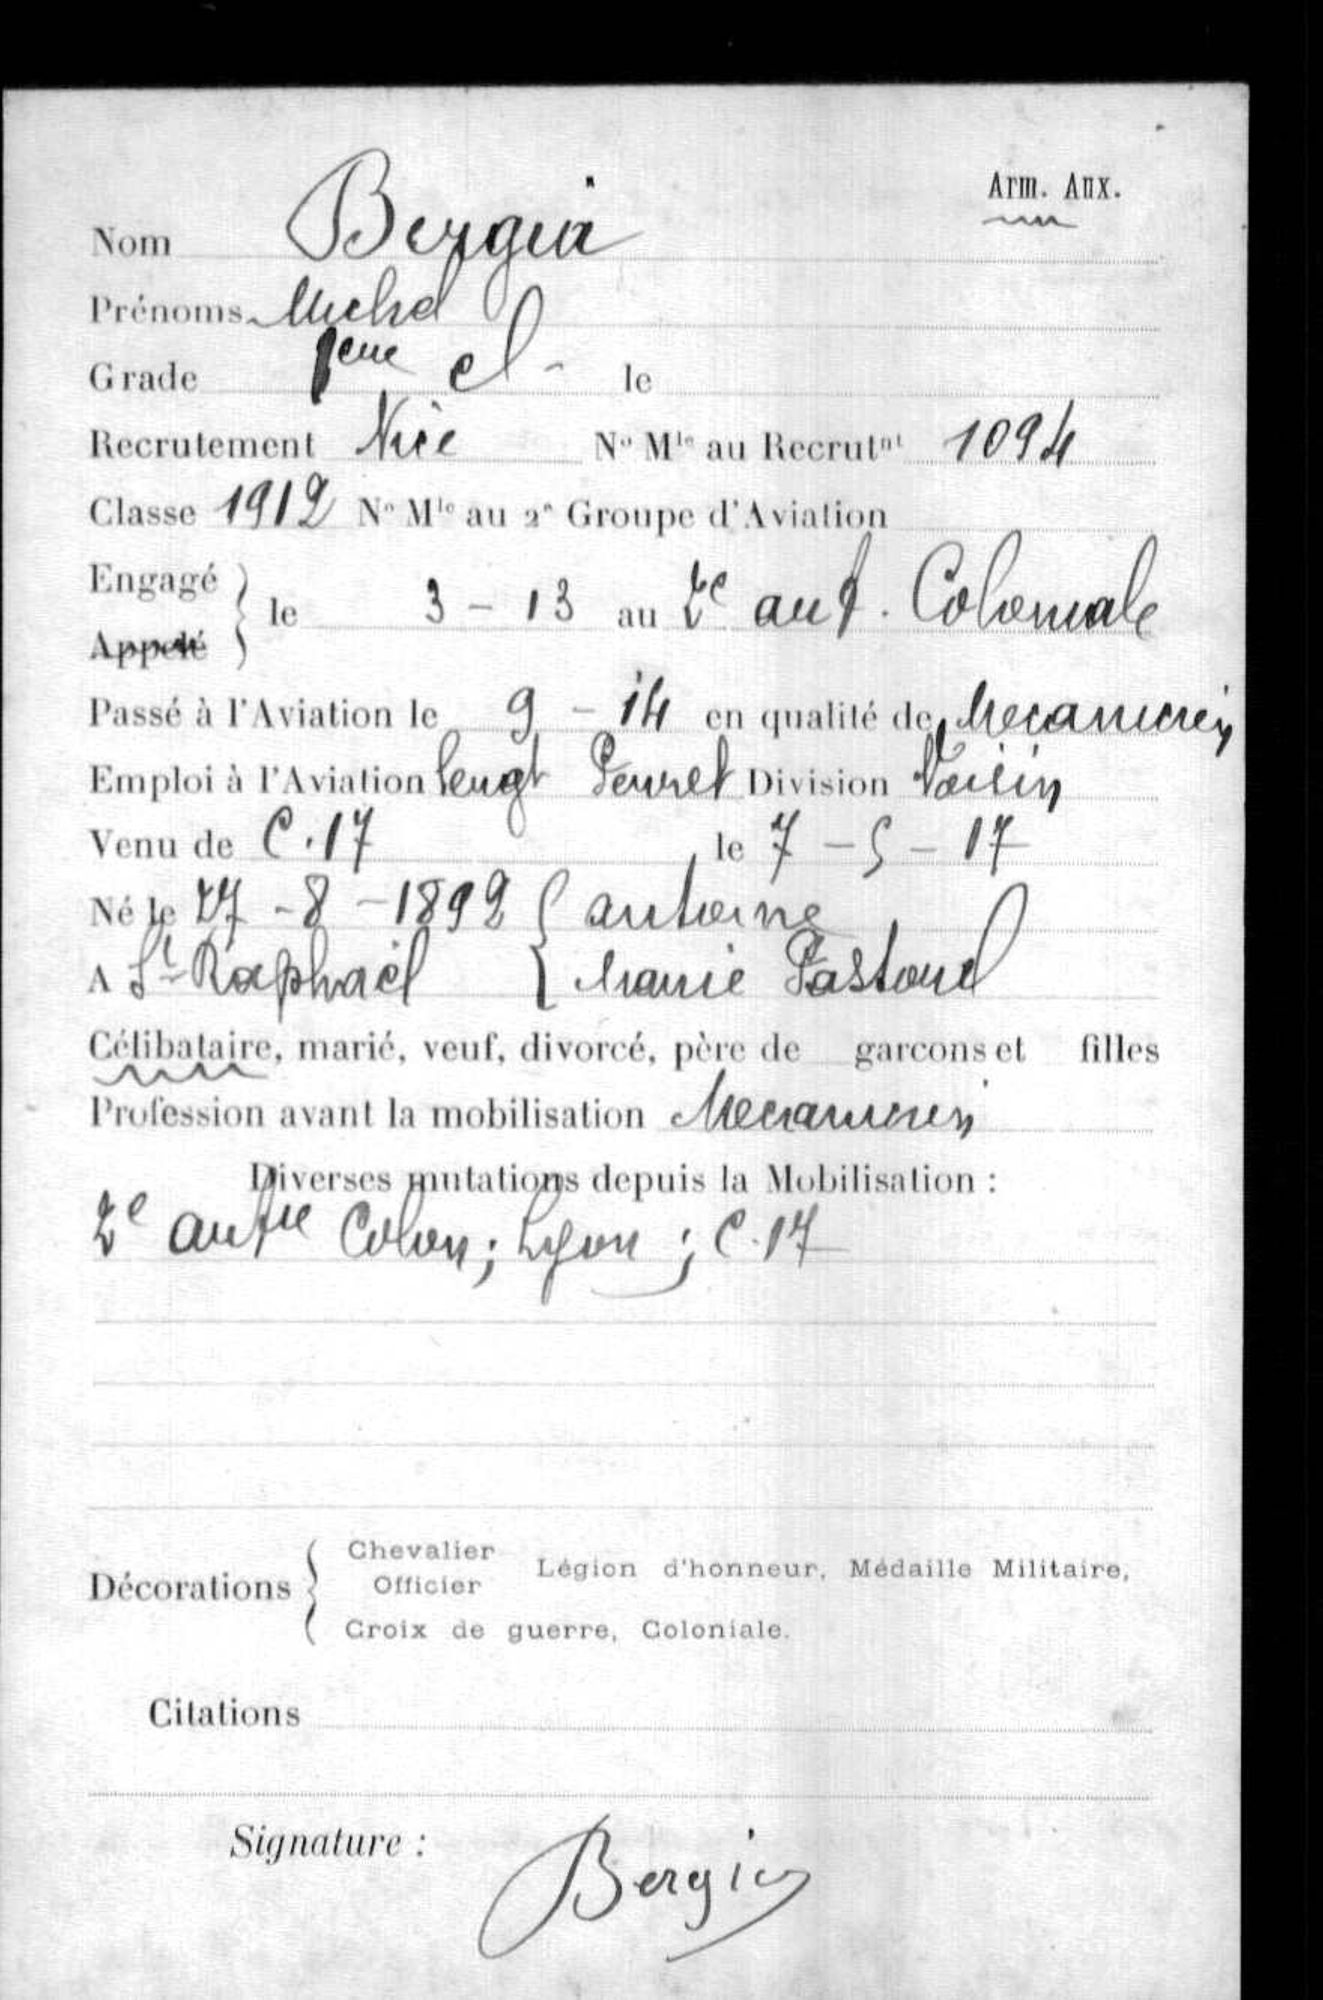 Arm. Aux.
Nom Bergia
Prénoms Michel
Grade 2eme cl - le
Recrutement Nice N° Mle au Recrutnt 1094
Classe 1912 N° Mle au 2e Groupe d'Aviation
Engagé
le 3 - 13 au 2e art. Coloniale
Appelé
Passé à l'Aviation le 9 - 14 en qualité de Mecanicien
Emploi à l'Aviation Division Voisin
Venu de C.17 le 7 - 5 - 17
Né le 27 - 8 - 1892 Antoine
A St Raphaël Marie
Célibataire, marié, veuf, divorcé, père de garcons et filles
Profession avant la mobilisation Mecanicien
Diverses mutations depuis la Mobilisation :
2e artie Colon ; Lyon ; C.17
Décorations
Chevalier
Officier
Légion d'honneur, Médaille Militaire,
Croix de guerre, Coloniale.
Citations
Signature :
Bergia